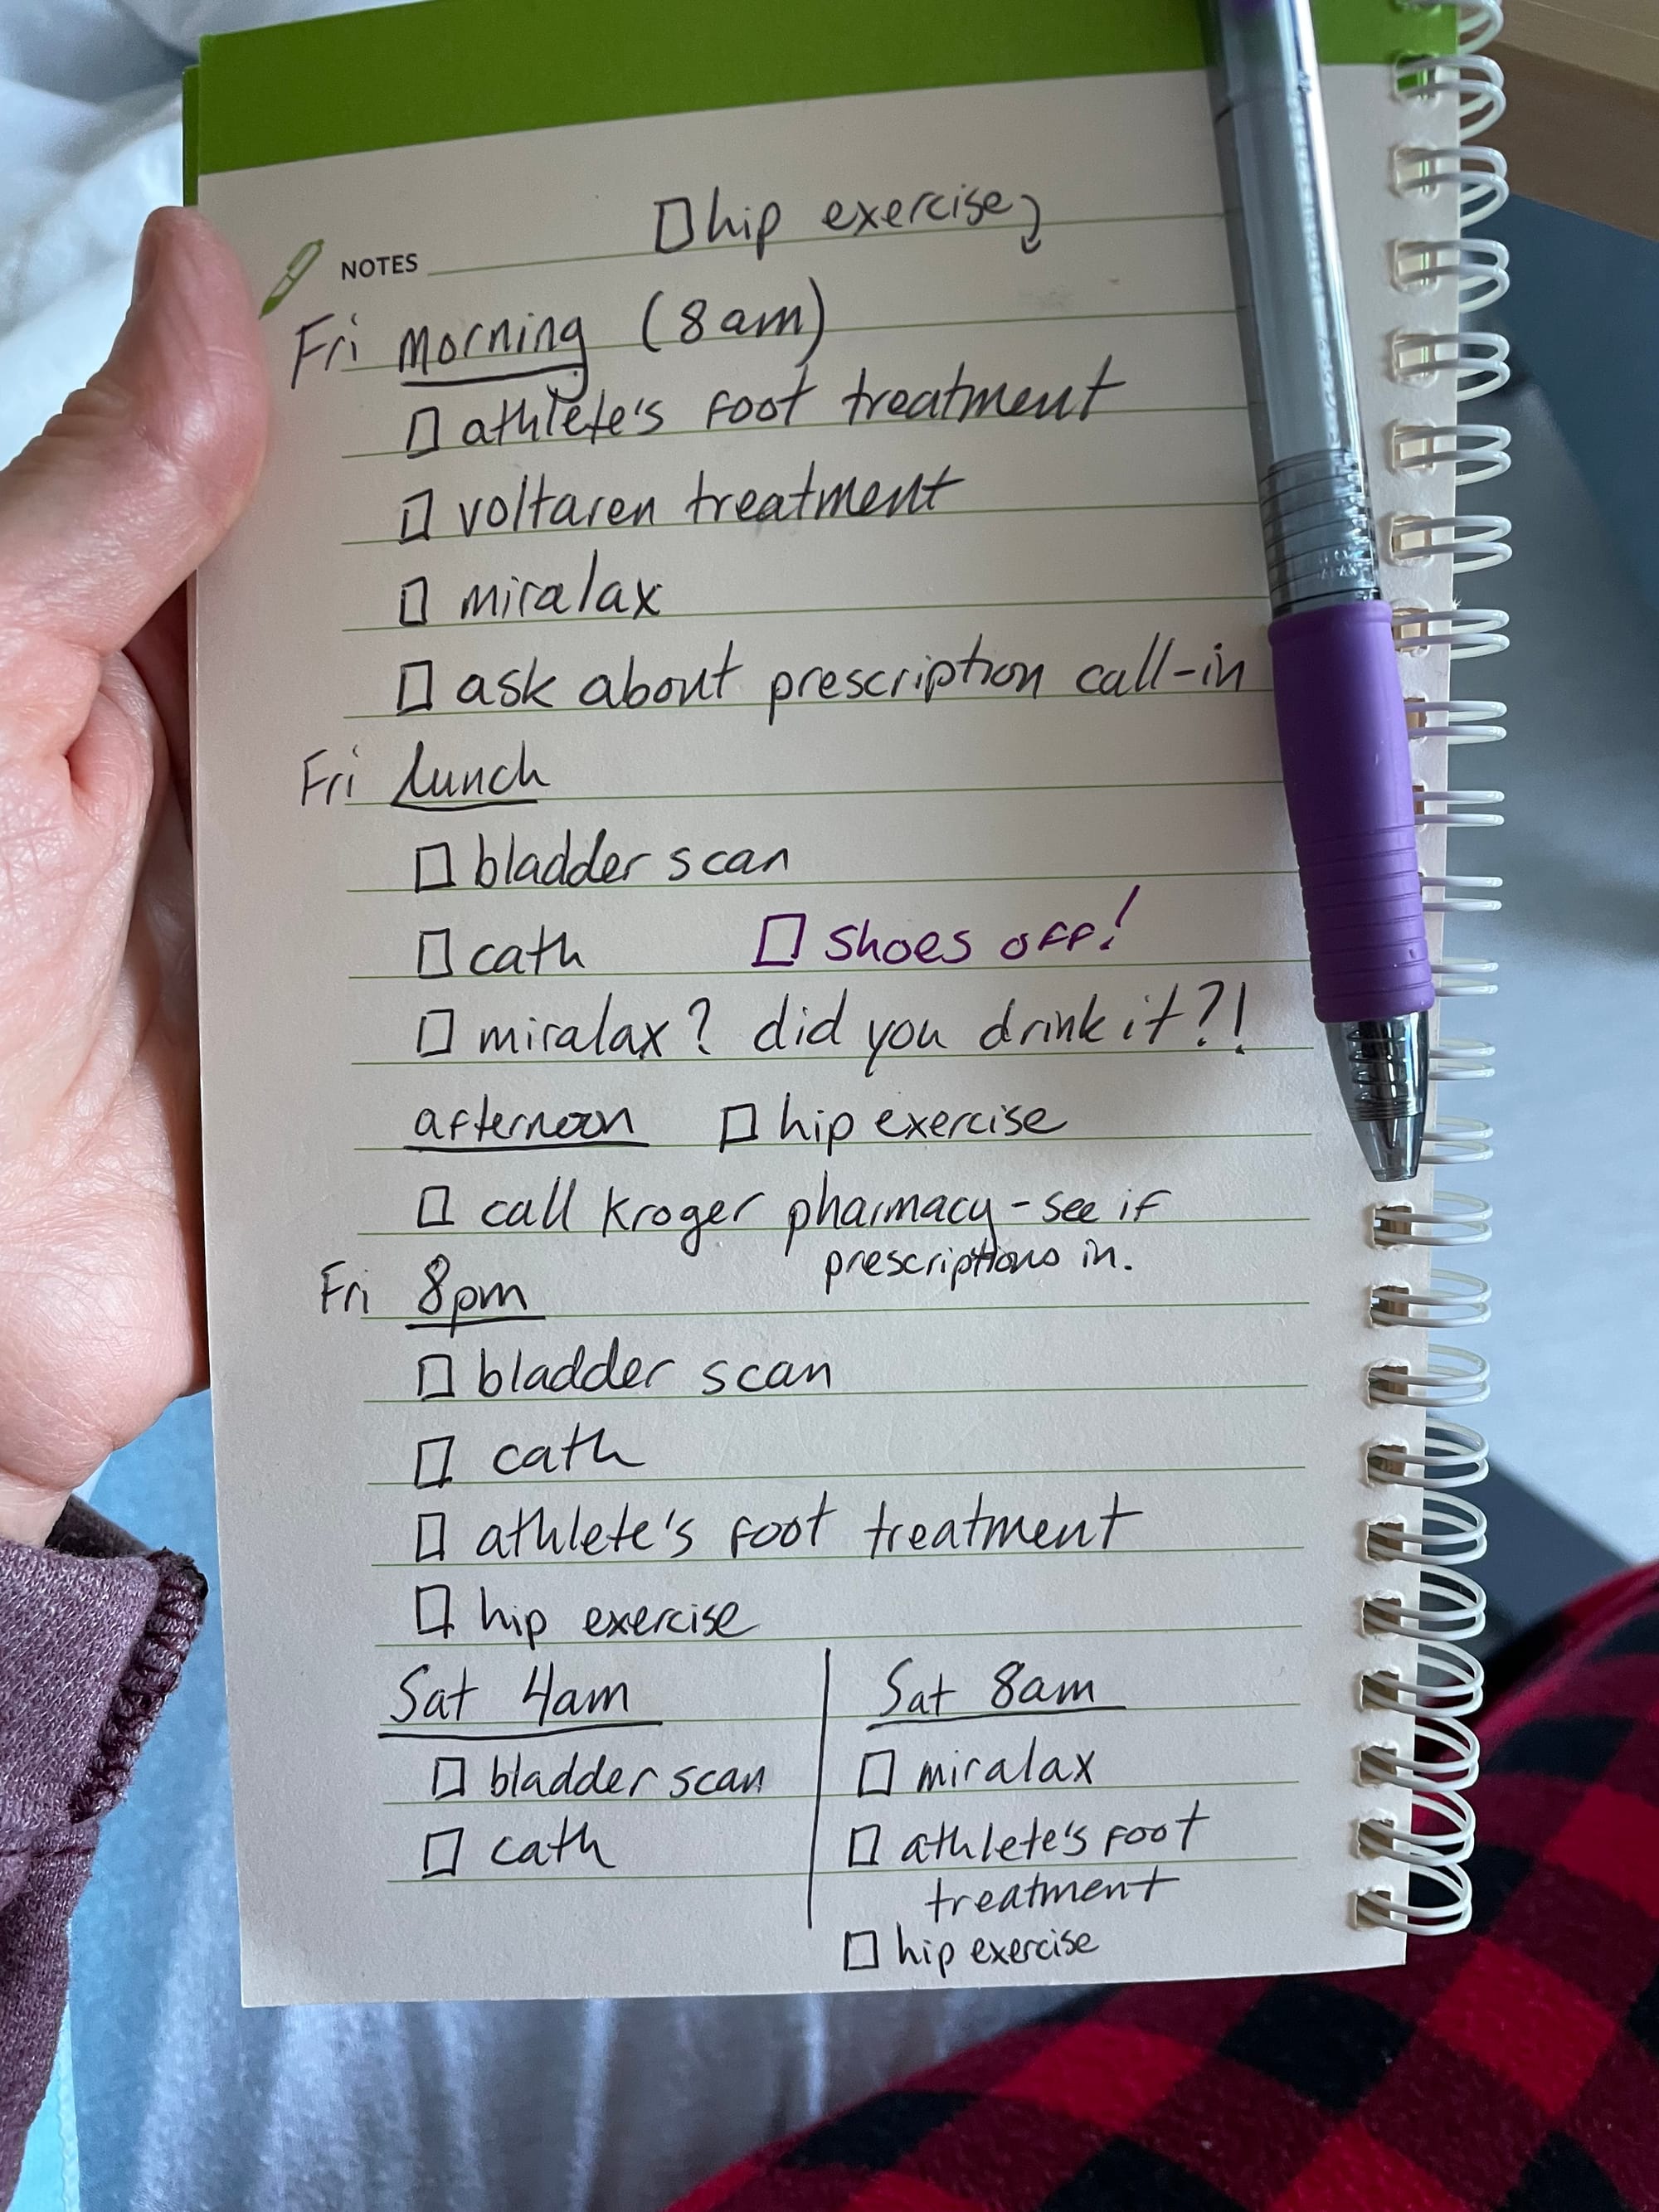 ☐ hip exercise
NOTES
Fri morning (8am)
☐ athlete's foot treatment
☐ voltaren treatment
☐ miralax
☐ ask about prescription call-in
Fri Lunch
☐ bladder scan
☐ cath ☐ shoes off!
☐ miralax? did you drink it?!
afternoon ☐ hip exercise
☐ call kroger pharmacy - see if
prescriptions in.
Fri 8pm
☐ bladder scan
☐ cath
☐ athlete's foot treatment
☐ hip exercise
Sat 4am
☐ bladder scan
☐ cath
Sat 8am
☐ miralax
☐ athlete's foot
treatment
☐ hip exercise